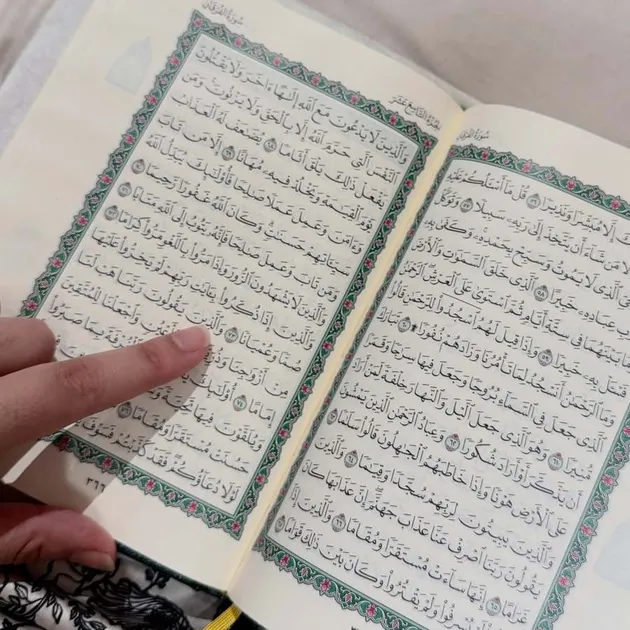 سُورَةُ الفُرْقَانِ
إِلَّا مُبَشِّرًا وَنَذِيرًا ٥٦ قُلْ مَآ أَسْـَٔلُكُمْ عَلَيْهِ
إِلَّا مَن شَآءَ أَن يَتَّخِذَ إِلَىٰ رَبِّهِۦ سَبِيلًا ٥٧ وَتَوَكَّلْ
ٱلَّذِى لَا يَمُوتُ وَسَبِّحْ بِحَمْدِهِۦ وَكَفَىٰ بِهِۦ
عِبَادِهِۦ خَبِيرًا ٥٨ ٱلَّذِى خَلَقَ ٱلسَّمَٰوَٰتِ وَٱلْأَرْضَ
وَمَا بَيْنَهُمَا فِى سِتَّةِ أَيَّامٍ ثُمَّ ٱسْتَوَىٰ عَلَى ٱلْعَرْشِ ٱلرَّحْمَٰنُ
فَسْـَٔلْ بِهِۦ خَبِيرًا ٥٩ وَإِذَا قِيلَ لَهُمُ ٱسْجُدُوا۟ لِلرَّحْمَٰنِ قَالُوا۟
وَمَا ٱلرَّحْمَٰنُ أَنَسْجُدُ لِمَا تَأْمُرُنَا وَزَادَهُمْ نُفُورًا ٦٠ تَبَارَكَ
ٱلَّذِى جَعَلَ فِى ٱلسَّمَآءِ بُرُوجًا وَجَعَلَ فِيهَا سِرَٰجًا وَقَمَرًا
مُّنِيرًا ٦١ وَهُوَ ٱلَّذِى جَعَلَ ٱلَّيْلَ وَٱلنَّهَارَ خِلْفَةً لِّمَنْ أَرَادَ
أَن يَذَّكَّرَ أَوْ أَرَادَ شُكُورًا ٦٢ وَعِبَادُ ٱلرَّحْمَٰنِ ٱلَّذِينَ يَمْشُونَ
عَلَى ٱلْأَرْضِ هَوْنًا وَإِذَا خَاطَبَهُمُ ٱلْجَٰهِلُونَ قَالُوا۟ سَلَٰمًا ٦٣
وَٱلَّذِينَ يَبِيتُونَ لِرَبِّهِمْ سُجَّدًا وَقِيَٰمًا ٦٤ وَٱلَّذِينَ
يَقُولُونَ رَبَّنَا ٱصْرِفْ عَنَّا عَذَابَ جَهَنَّمَ إِنَّ عَذَابَهَا كَانَ
غَرَامًا ٦٥ إِنَّهَا سَآءَتْ مُسْتَقَرًّا وَمُقَامًا ٦٦ وَٱلَّذِينَ إِذَآ
يُسْرِفُوا۟ وَلَمْ يَقْتُرُوا۟ وَكَانَ بَيْنَ ذَٰلِكَ قَوَامًا ٦٧
سُورَةُ الفُرْقَانِ
الجُزْءُ التَّاسِعُ عَشَرَ
وَٱلَّذِينَ لَا يَدْعُونَ مَعَ ٱللَّهِ إِلَٰهًا ءَاخَرَ وَلَا يَقْتُلُونَ
ٱلنَّفْسَ ٱلَّتِى حَرَّمَ ٱللَّهُ إِلَّا بِٱلْحَقِّ وَلَا يَزْنُونَ وَمَن
يَفْعَلْ ذَٰلِكَ يَلْقَ أَثَامًا ٦٨ يُضَٰعَفْ لَهُ ٱلْعَذَابُ
يَوْمَ ٱلْقِيَٰمَةِ وَيَخْلُدْ فِيهِۦ مُهَانًا ٦٩ إِلَّا مَن تَابَ
وَءَامَنَ وَعَمِلَ عَمَلًا صَٰلِحًا فَأُو۟لَٰٓئِكَ يُبَدِّلُ ٱللَّهُ
سَيِّـَٔاتِهِمْ حَسَنَٰتٍ وَكَانَ ٱللَّهُ غَفُورًا رَّحِيمًا ٧٠
وَمَن تَابَ وَعَمِلَ صَٰلِحًا فَإِنَّهُۥ يَتُوبُ إِلَى ٱللَّهِ مَتَابًا ٧١
وَٱلَّذِينَ لَا يَشْهَدُونَ ٱلزُّورَ وَإِذَا مَرُّوا۟ بِٱللَّغْوِ مَرُّوا۟ كِرَامًا ٧٢
وَٱلَّذِينَ إِذَا ذُكِّرُوا۟ بِـَٔايَٰتِ رَبِّهِمْ لَمْ يَخِرُّوا۟ عَلَيْهَا
صُمًّا وَعُمْيَانًا ٧٣ وَٱلَّذِينَ يَقُولُونَ رَبَّنَا هَبْ لَنَا
مِنْ أَزْوَٰجِنَا أَعْيُنٍ وَٱجْعَلْنَا لِلْمُتَّقِينَ
إِمَامًا ٧٤ أُو۟لَٰٓئِكَ بِمَا صَبَرُوا۟
وَيُلَقَّوْنَ فِيهَا تَحِيَّةً
حَسُنَتْ مُسْتَقَرًّا وَمُقَامًا ٧٦
لَوْلَا دُعَآؤُكُمْ فَقَدْ كَذَّبْتُمْ فَسَوْفَ
٣٦٦